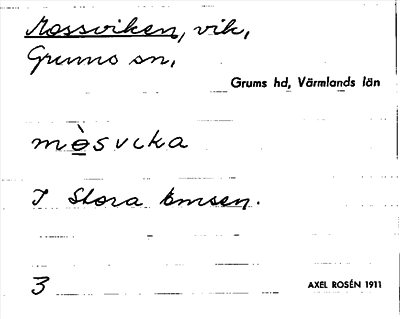 Mossviken, vik,
Grums sn,
Grums hd, Värmlands län
mo̱̊̀svıka
I Stora Emsen.
3 AXEL ROSÉN 1911